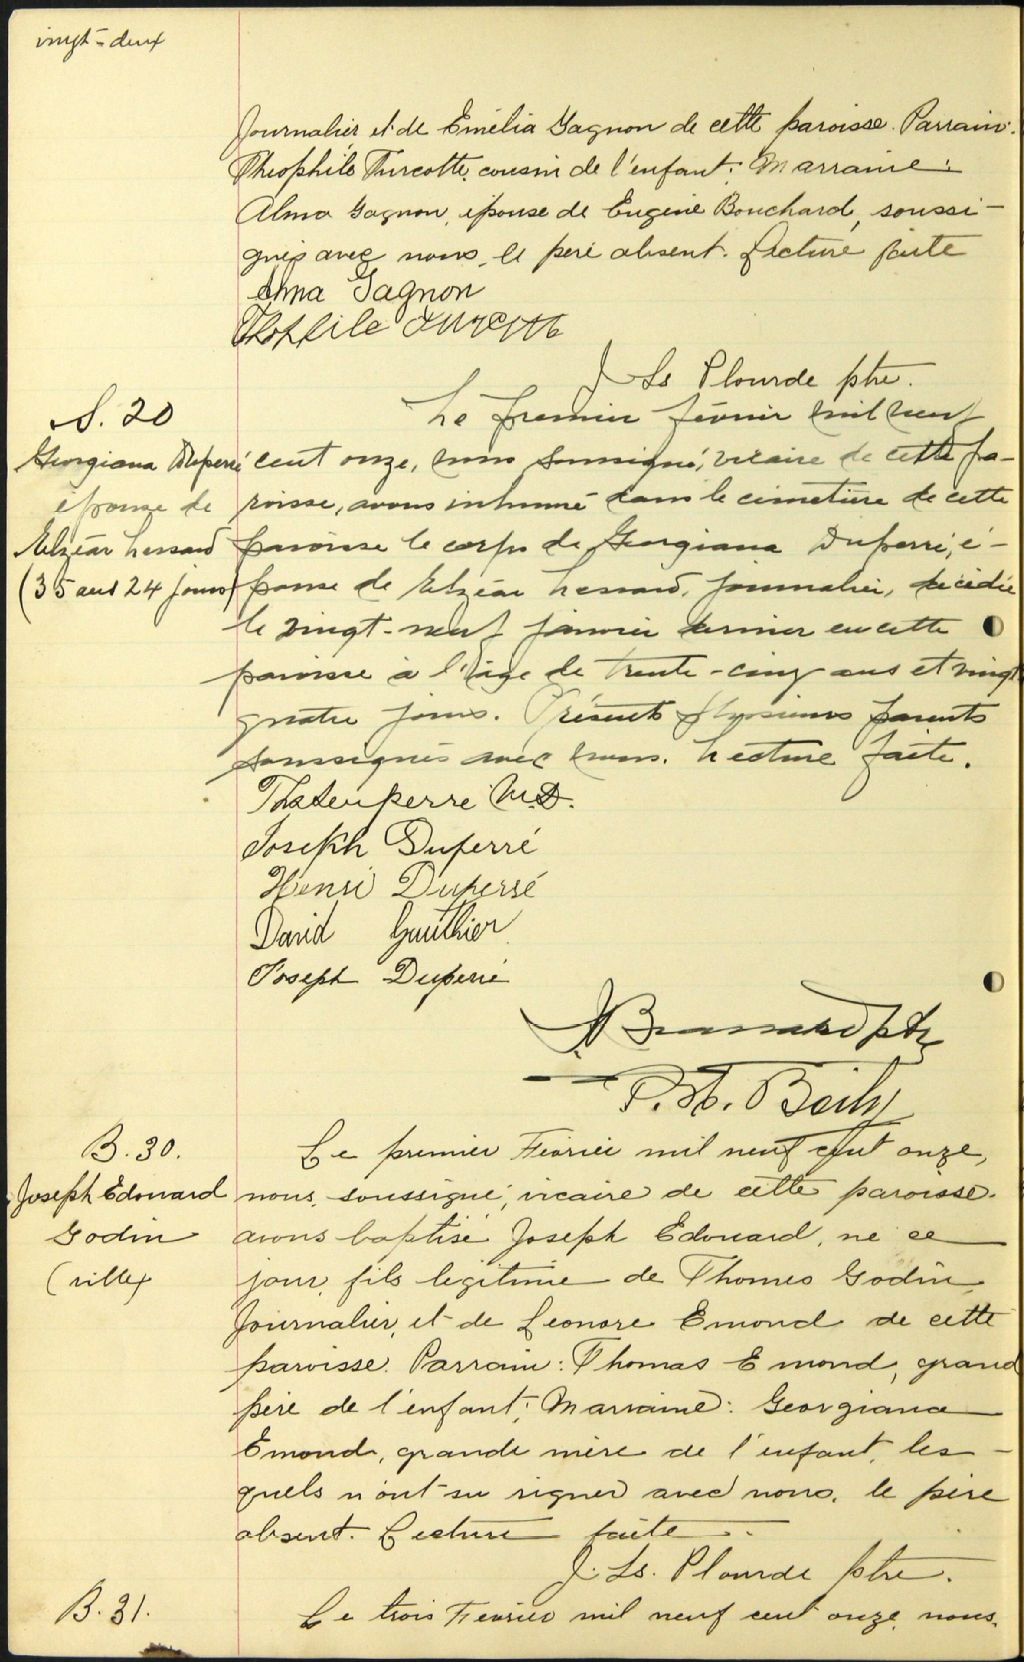 vingt-deux
Journalier et de Emélia Gagnon de cette paroisse. Parrain:
Théophile Turcotte, cousin de l'enfant; Marraine:
Alma Gagnon, épouse de Eugène Bouchard, soussi-
gnés avec nous, le père absent. Lecture faite
Alma Gagnon
J Ls Plourde ptre.
S. 20
Georgiana Duperré
épouse de
Elzéar Lessard
(35 ans 24 jours)
Le premier février mil neuf
cent onze, nous soussigné, vicaire de cette pa-
roisse, avons inhumé dans le cimetière de cette
paroisse le corps de Georgiana Duperré, é-
pouse de Elzéar Lessard, journalier, décédée
le vingt-neuf janvier dernier en cette
paroisse à l'âge de trente-cinq ans et vingt
quatre jours. Présents plusieurs parents
soussignés avec nous. Lecture faite.
M.D.
Joseph Duperré
Henri Duperré
David Gauthier
Joseph Duperré
ptre
P. A.
B. 30.
Joseph Edouard
Godin
(ville)
Le premier Février mil neuf cent onze,
nous, soussigné, vicaire de cette paroisse,
avons baptisé Joseph Edouard, né ce
jour, fils légitime de Thomas Godin,
Journalier, et de Leonore Emond de cette
paroisse. Parrain: Thomas Emond, grand
père de l'enfant; Marraine: Georgiana
Emond, grande mère de l'enfant, les-
quels n'ont su signer avec nous, le père
absent. Lecture faite.
J. Ls. Plourde ptre.
B. 31.
Le trois Février mil neuf cent onze, nous,